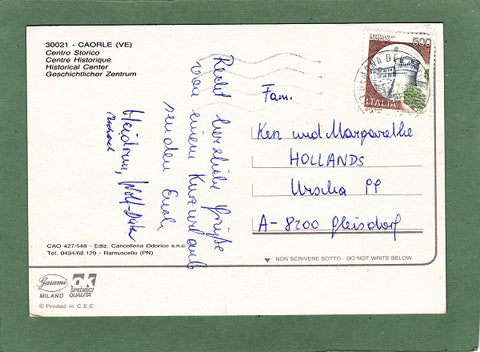 30021 - CAORLE (VE)
Centro Storico
Centre Historique
Historical Center
Geschichtlicher Zentrum
Recht herzliche Grüße
von einem Kurzurlaub
senden Euch
Heidrun, Wolf-Dieter
Michael
500
ITALIA
Fam.
Ken und Margarethe
HOLLANDS
Urscha PP
A-8200 Gleisdorf
CAO 427/548 - Ediz. Cancelleria Odorico s.n.c.
Tel. 0434/68.129 - Ramuscello (PN)
▼ NON SCRIVERE SOTTO - DO NOT WRITE BELOW
Garami
MILANO
OK
SPEDISCI
QUALITA'
© Printed in C.E.E.